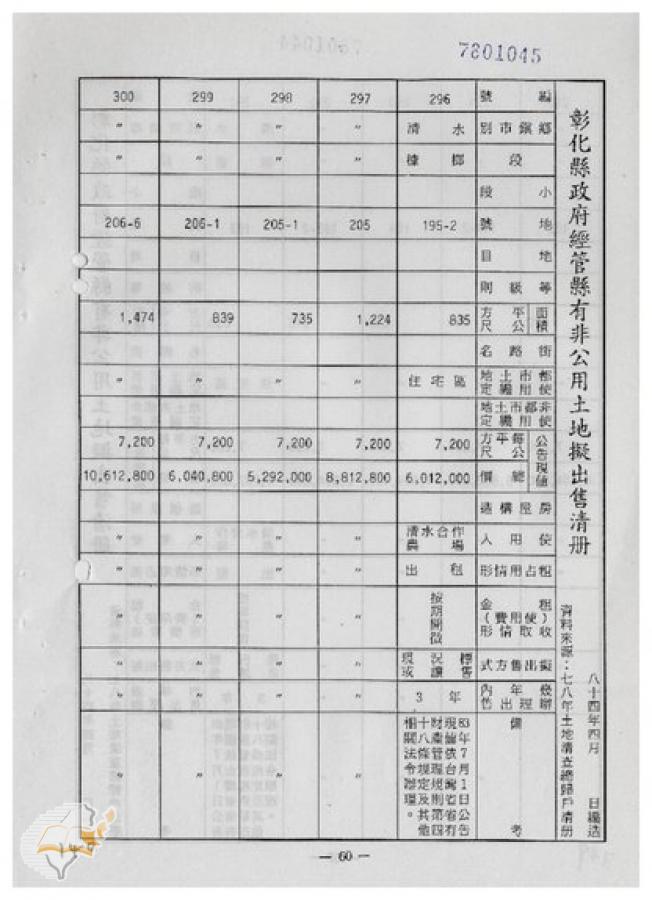 7801045
彰化縣政府經管縣有非公用土地擬出售清册
資料來源：七八年土地清查總歸戶清册
八十四年四月　日編造
編號 296 297 298 299 300
鄉鎮市別 清水 〃 〃 〃 〃
段 槺榔 〃 〃 〃 〃
小段
地號 195-2 205 205-1 206-1 206-6
地目
等級則
面積 平方公尺 835 1,224 735 839 1,474
街路名
都市土地使用編定 住宅區 〃 〃 〃 〃
非都市土地使用編定
公告現值 每平方公尺 7,200 7,200 7,200 7,200 7,200
總價 6,012,000 8,812,800 5,292,000 6,040,800 10,612,800
房屋構造
使用人 清水合作農場 〃 〃 〃 〃
租占用情形 出租 〃 〃 〃 〃
租金(使用費)收取情形 按期開徵 〃 〃 〃 〃
擬出售方式 現況標售或讓售 〃 〃 〃 〃
幾年內辦理出售 3年 〃 〃 〃 〃
備考 83年7月1日公告現值依台灣省省有財產管理規則第四十八條規定及其他相關法令辦理。 〃 〃 〃 〃
— 60 —